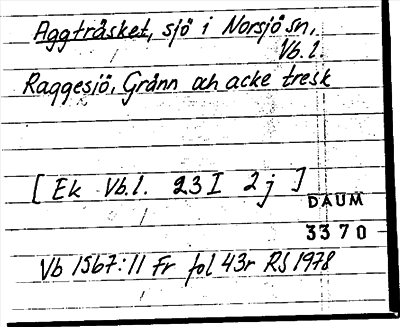 Aggträsket, sjö i Norsjö sn,
Vb.l.
Raggesjö, Gränn och acke tresk
[Ek Vb.l. 23 I 2j]
DAUM
3370
Vb 1567:11 Fr fol 43r RS 1978